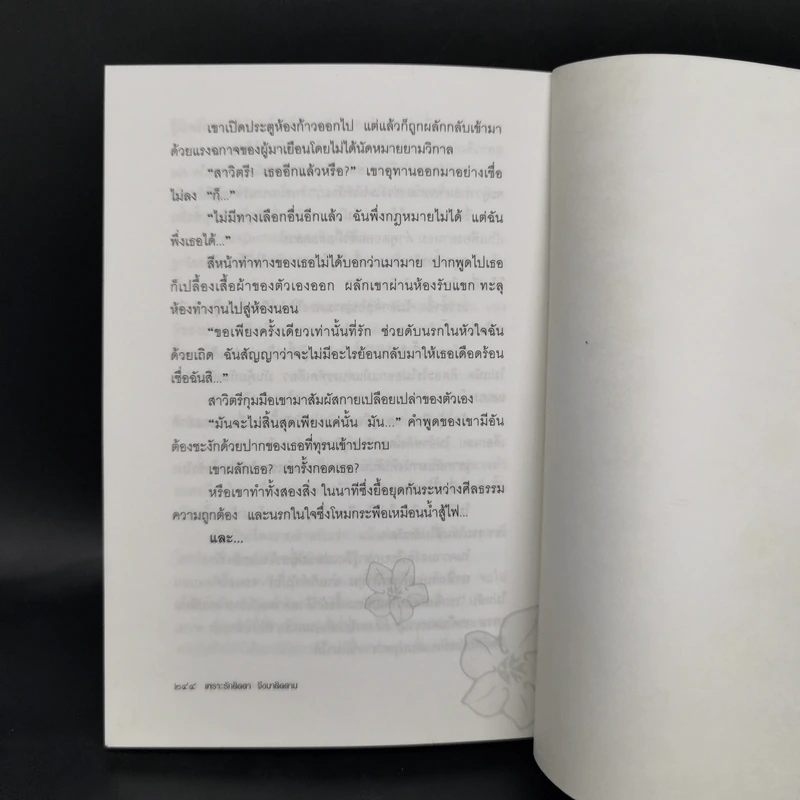 เขาเปิดประตูห้องก้าวออกไป แต่แล้วก็ถูกผลักกลับเข้ามา
ด้วยแรงฉกาจของผู้มาเยือนโดยไม่ได้นัดหมายยามวิกาล
“สาวิตรี! เธออีกแล้วหรือ?” เขาอุทานออกมาอย่างเชื่อ
ไม่ลง “ก็...”
“ไม่มีทางเลือกอื่นอีกแล้ว ฉันพึ่งกฎหมายไม่ได้ แต่ฉัน
พึ่งเธอได้...”
สีหน้าท่าทางของเธอไม่ได้บอกว่าเมามาย ปากพูดไปเธอ
ก็เปลื้องเสื้อผ้าของตัวเองออก ผลักเขาผ่านห้องรับแขก ทะลุ
ห้องทำงานไปสู่ห้องนอน
“ขอเพียงครั้งเดียวเท่านั้นที่รัก ช่วยดับนรกในหัวใจฉัน
ด้วยเถิด ฉันสัญญาว่าจะไม่มีอะไรย้อนกลับมาให้เธอเดือดร้อน
เชื่อฉันสิ...”
สาวิตรีกุมมือเขามาสัมผัสกายเปลือยเปล่าของตัวเอง
“มันจะไม่สิ้นสุดเพียงแค่นั้น มัน...” คำพูดของเขามีอัน
ต้องชะงักด้วยปากของเธอที่ทุรนเข้าประกบ
เขาผลักเธอ? เขารั้งกอดเธอ?
หรือเขาทำทั้งสองสิ่ง ในนาทีซึ่งยื้อยุดกันระหว่างศีลธรรม
ความถูกต้อง และนรกในใจซึ่งโหมกระพือเหมือนน้ำสู้ไฟ...
และ...
๒๔๔ เพราะรักติดตา จึงมาติดตาม